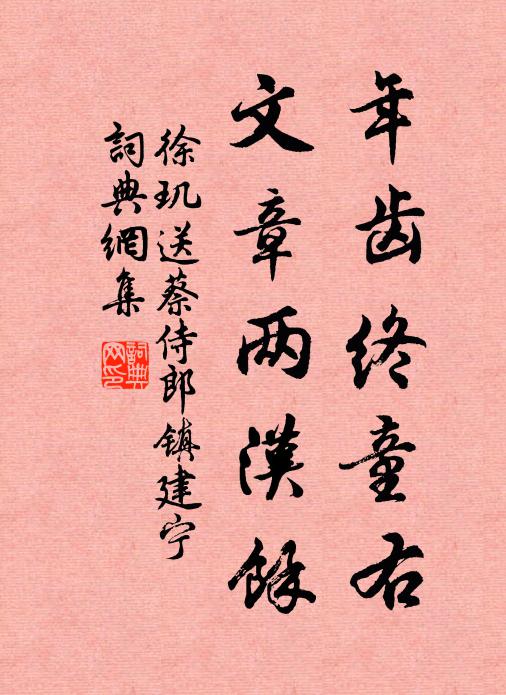 年齿终童右
文章两漢餘
徐玑送蔡侍郎镇建宁
詞典網集
詞典网印